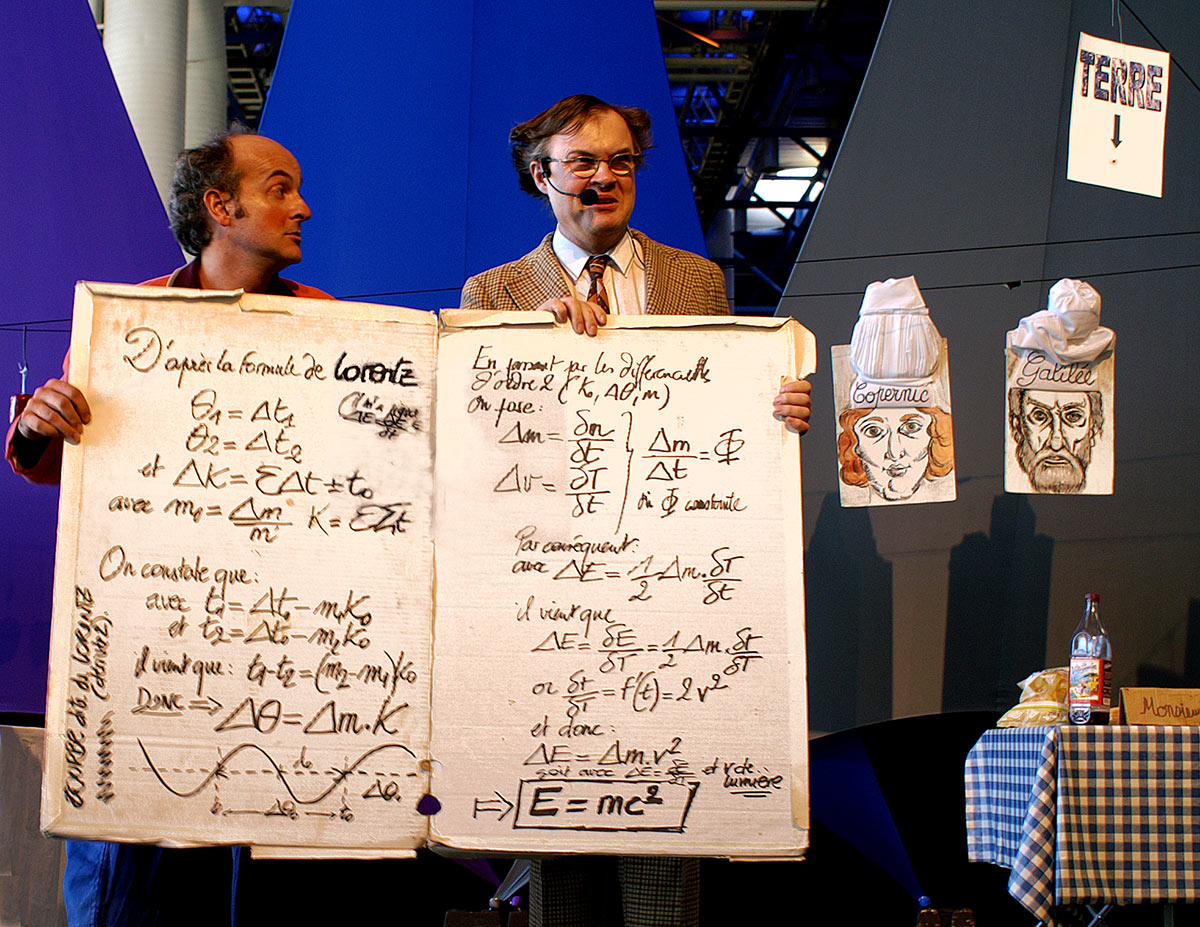 D'après la formule de LORENTZ
θ1 = Δt1
θ2 = Δt2
et ΔK = ΣΔt ± to
avec m1 = Δm/m K = ΣΣt
On constate que:
avec t1 = Δto - m1Ko
et t2 = Δto - m2Ko
il vient que: t1-t2 = (m2-m1)Ko
DONC ⇒ Δθ = Δm.K
to
Δθ1
to Δθo to
COURBE dite de LORENTZ
En passant par les différentielles
d'ordre 2 (Ko, Δθ, m)
On pose:
Δm = δm/δt
Δv = δT/δt
Δm/Δt = Φ
où Φ constante
Par conséquent:
avec ΔE = 1/2 Δm.δT/δt
il vient que
ΔE = δE/δT = 1/2 Δm.δt/δT
or δt/δT = f'(t) = 2v²
et donc:
ΔE = Δm.v²
soit avec ΔE = et v de lumière
⇒ E = mc²
TERRE
↓
Copernic
Galilée
Monsieur